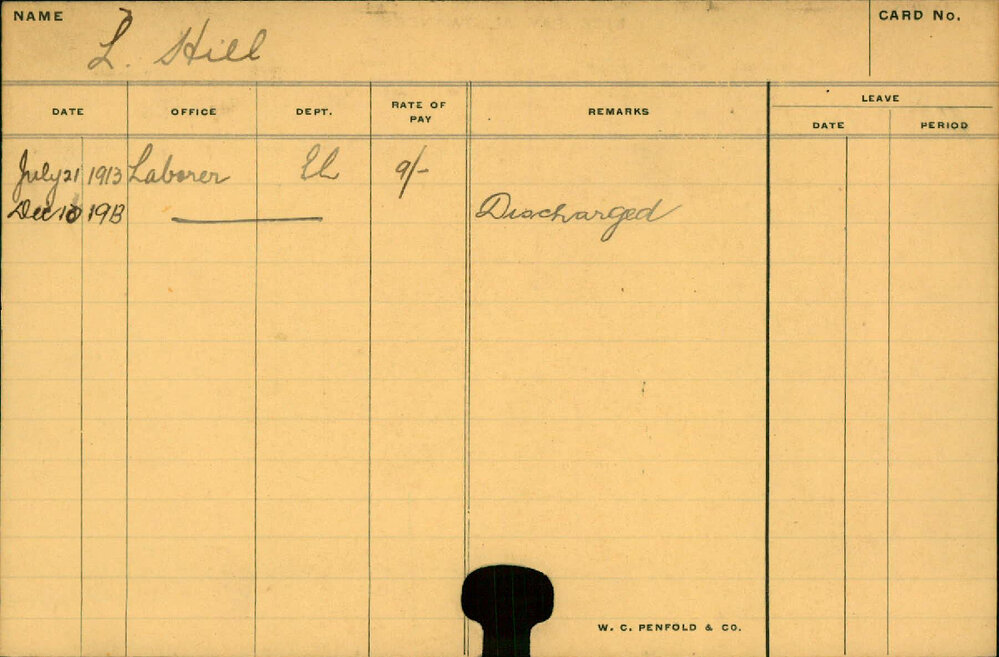 NAME
L. Hill
CARD No.
DATE OFFICE DEPT. RATE OF PAY REMARKS LEAVE
DATE PERIOD
July 21 1913 Laborer EL 9/-
Dec 1913 Discharged
W. C. PENFOLD & CO.